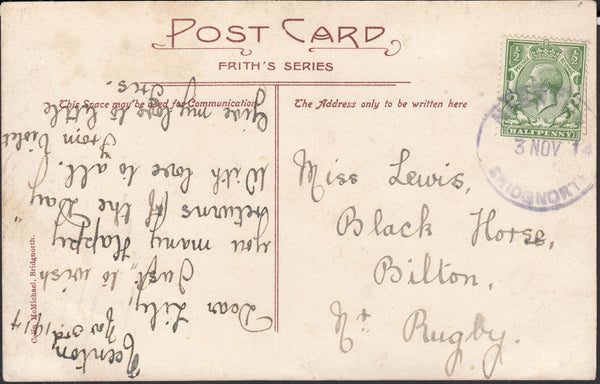 POST CARD
FRITH'S SERIES
This Space may be used for Communication.
The Address only to be written here
HALFPENNY
3 NOV 14
BRIDGNORTH
Miss Lewis,
Black Horse,
Bilton,
Nr Rugby.
Neenton,
Nov 3rd/14
Dear Lily,
Just to wish
you many Happy
returns of the Day
With love to all.
From Violet
Give my love to little
Iris.
McMichael, Bridgnorth.